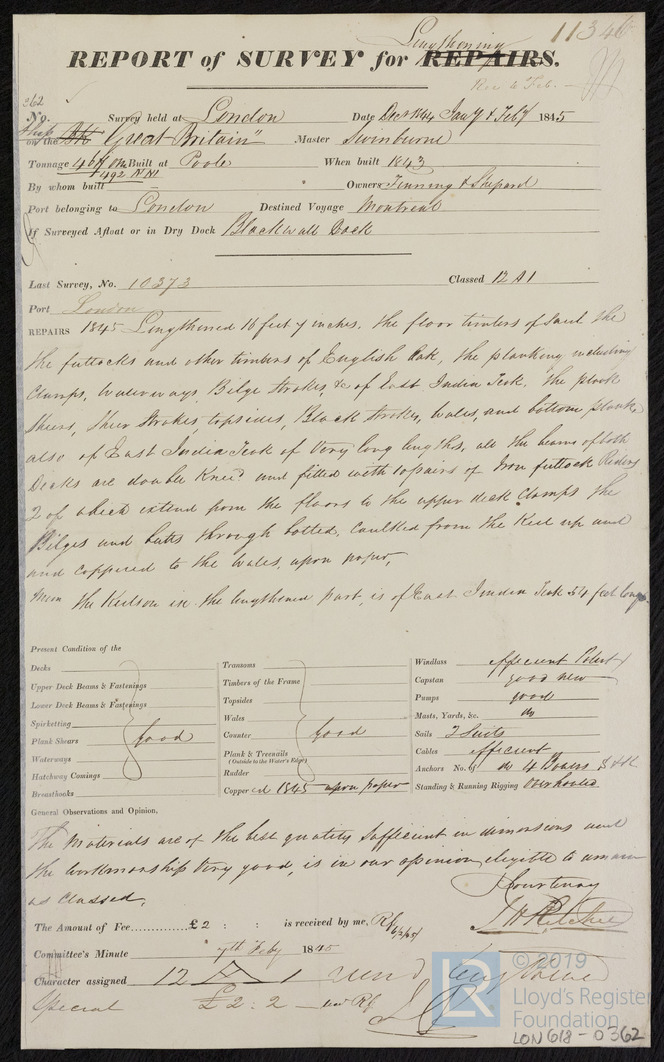 Lengthening 11346
REPORT of SURVEY for REPAIRS.
Rec 6 Feb.
362
No. Survey held at London Date Decr 1844 Jany & Feby 1845
on the Ship Bk "Great Britain" Master Swinburne
Tonnage 464 om Built at Poole When built 1843
492 NM
By whom built — Owners Tinning & Shepard
Port belonging to London Destined Voyage Montreal
If Surveyed Afloat or in Dry Dock Blackwall Dock
Last Survey, No. 10373 Classed 12 A1
Port London
REPAIRS 1845 Lengthened 16 feet 7 inches. the floor timbers of Saul the
the futtocks and other timbers of English Oak, the planking including
Clamps, Waterways, Bilge strakes, &c of East India Teak. the plank
sheers, sheer strakes topsides, Black strakes, Wales, and bottom plank
also of East India Teak of very long lengths, all the beams of both
Decks are double Knee'd and fitted with 10 pairs of Iron futtock Riders
2 of which extend from the floors to the upper deck Clamps the
Bilges and butts through bolted, Caulked from the Keel up and
and coppered to the Wales, upon paper,
Mem the Keelson in the lengthened part, is of East India Teak 54 feet long.
Present Condition of the
Decks
Upper Deck Beams & Fastenings
Lower Deck Beams & Fastenings
Spirketting
Plank Shears
Waterways
Hatchway Comings
Breasthooks
good
Transoms
Timbers of the Frame
Topsides
Wales
Counter
Plank & Treenails
(Outside to the Water's Edge)
Rudder
good
Coppered 1845 upon paper
Windlass efficient Patent
Capstan good new
Pumps good
Masts, Yards, &c. do
Sails 2 Suits
Cables efficient
Anchors No. of do 4 Bowers
Standing & Running Rigging Overhauled
General Observations and Opinion,
The Materials are of the best quality sufficient in dimensions and
the workmanship very good, is in our opinion eligible to remain
as Classed.
Courtenay
The Amount of Fee £2 : : is received by me,
Committee's Minute 7th Feby 1845
Character assigned 12 A 1
Special £2 : 2
LR
© 2019
Lloyd's Register
Foundation
LON 618 - 0362